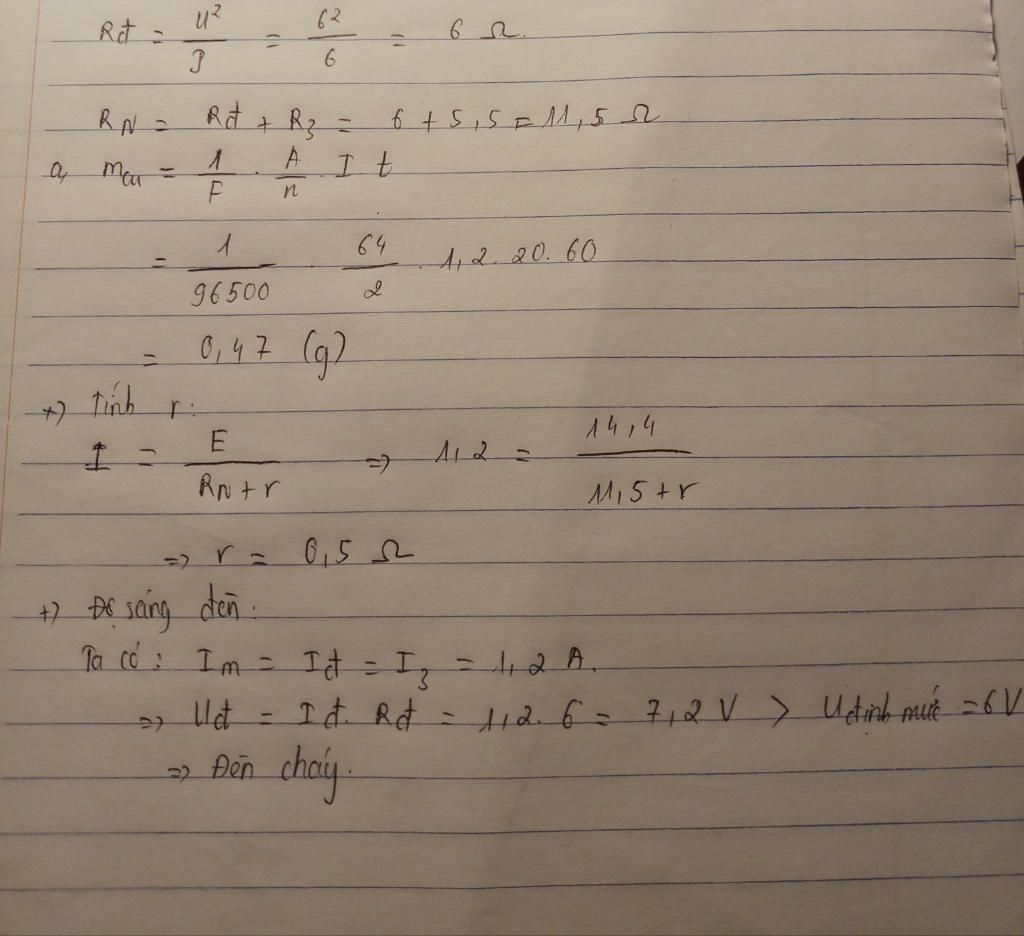 Rđ = U²/P = 6²/6 = 6 Ω.
R_N = Rđ + R₃ = 6 + 5,5 = 11,5 Ω
a, m_Cu = 1/F . A/n . I t
= 1/96500 . 64/2 . 1,2. 20. 60
= 0,47 (g)
+) Tính r:
I = E/(R_N + r) => 1,2 = 14,4/(11,5 + r)
=> r = 0,5 Ω
+) Độ sáng đèn.
Ta có: I_m = I_đ = I₃ = 1,2 A.
=> Uđ = Iđ. Rđ = 1,2. 6 = 7,2 V > U định mức = 6 V
=> Đèn cháy.